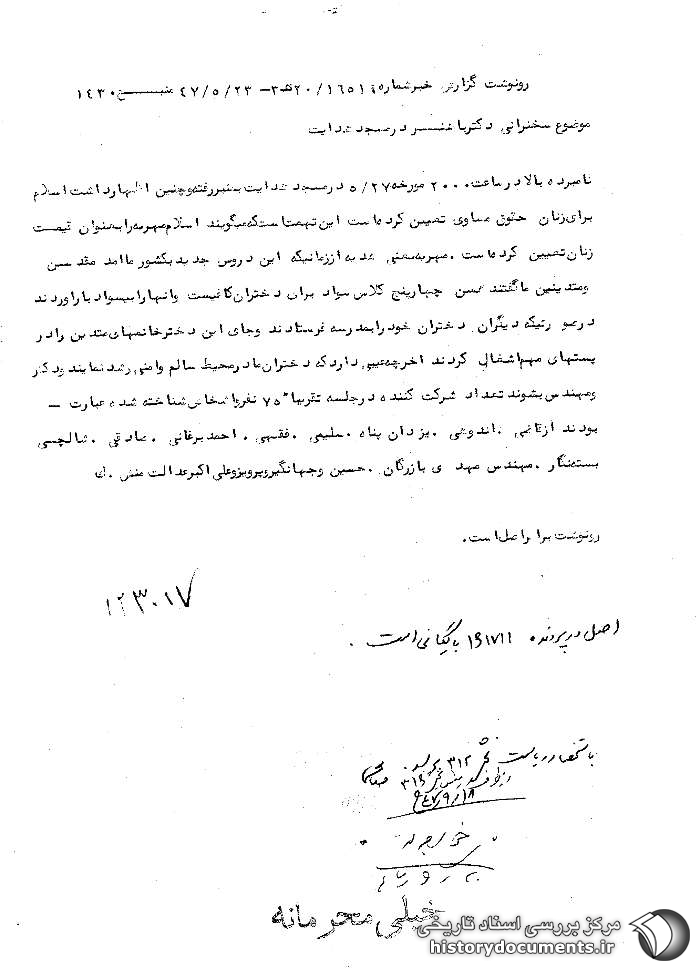 رونوشت گزارش خبر شماره ۱۶۵۱۱/۲۰ﻫ۳ – ۴۷/۵/۲۳ منبع ۱۴۳۰
موضوع سخنرانی دکتر باهنر در مسجد هدایت
نامبرده بالا در ساعت ۲۰۰۰ مورخه ۵/۲۷ در مسجد هدایت بمنبر رفته و چنین اظهار داشت اسلام
برای زنان حقوق مساوی تعیین کرده است این تهمت است که میگویند اسلام مهریه را بعنوان قیمت
زنان تعیین کرده است . مهریه یعنی هدیه از زمانیکه این دروس جدید بکشور ما آمد مقدسین
ومتدینین ما گفتند همین چهار پنج کلاس سواد برای دختران کافیست و آنها را بیسواد بار آوردند
در صورتیکه دیگران دختران خود را بمدرسه فرستادند وجای این دختر خانمهای متدین را در
پستهای مهم اشغال کردند آخر چه عیبی دارد که دختران ما در محیط سالم وامنی رشد نمایند ودکتر
ومهندس بشوند تعداد شرکت کننده در جلسه تقریبا" ۷۵ نفر و اشخاص شناخته شده عبارت –
بودند از قاضی . اندوشی . یزدان پناه . سلیمی . فقیهی . احمد برغانی . صادقی . شالچی
بسته نگار . مهندس مهدی بازرگان . حسین وجهانگیر و پرویز وعلی اکبر عدالت منش .
رونوشت برابر اصل است .
۱۲۳۰۱۷
اصل در پرونده ۱۶۱۷۱۱ بایگانی است .
باستحضار ریاست بخش ۳۱۲ برسد .
۴۷/۹/۱۸
خیلی محرمانه
مرکز بررسی اسناد تاریخی
historydocuments.ir